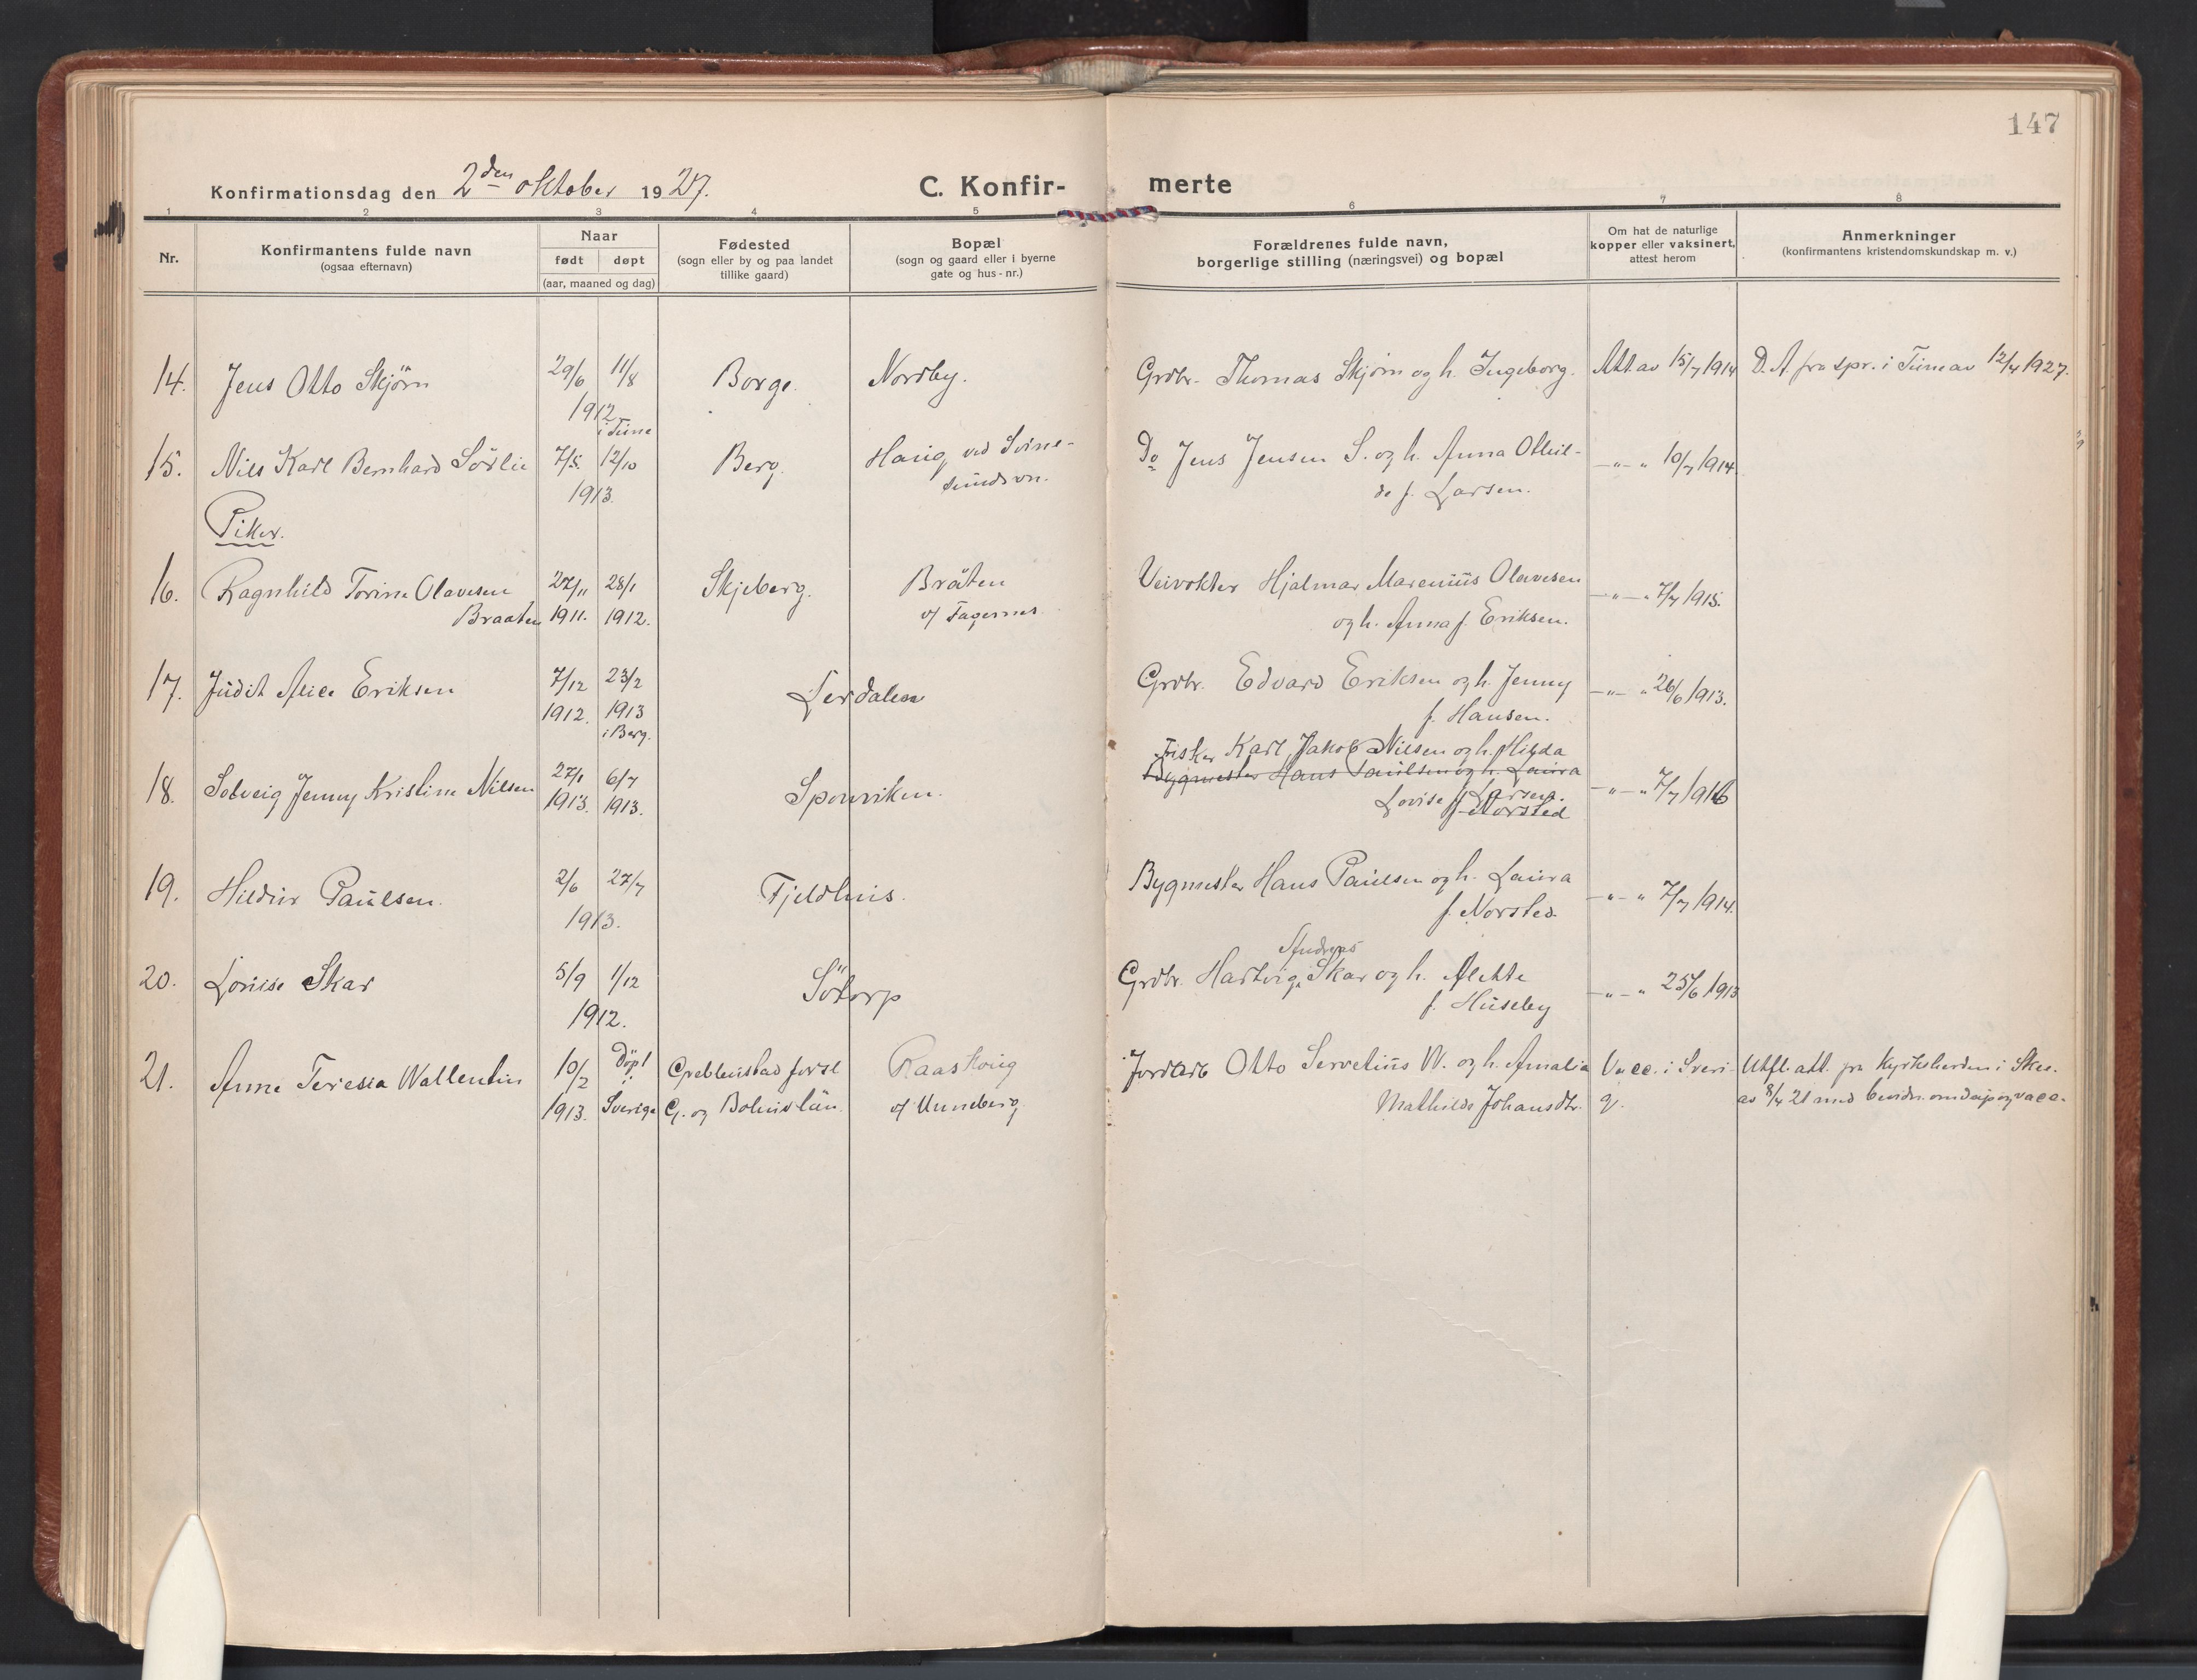 147
Konfirmationsdag den 2den oktober 1927.
C. Konfir- merte
1 2 3 4 5 6 7 8
Nr.
Konfirmantens fulde navn
(ogsaa efternavn)
Naar
født døpt
(aar, maaned og dag)
Fødested
(sogn eller by og paa landet
tillike gaard)
Bopæl
(sogn og gaard eller i byerne
gate og hus-nr.)
Forældrenes fulde navn,
borgerlige stilling (næringsvei) og bopæl
Om hat de naturlige
kopper eller vaksinert,
attest herom
Anmerkninger
(konfirmantens kristendomskundskap m. v.)
14. Jens Otto Skjörn 29/6 11/8 Borge. Nordby. Grdbr. Thomas Skjörn og h. Ingeborg. Att av 15/7 1914 D. A. fra spr. i Tune av 12/4 1927.
1912
i Tune
15. Nils Karl Bernhard Sörlie 7/5 12/10 Berg. Haug ved Svine- Do Jens Jensen S. og h. Anna Othil- —„—„ 10/7 1914.
1913. sundsvn. de f. Larsen.
Piker.
16. Ragnhild Torine Olavesen 27/11 28/1 Skjeberg. Bråten Veivokter Hjalmar Marenius Olavesen —„—„ 7/7 1915.
Braaten 1911. 1912. u/ Fagernes. og h. Anna f. Eriksen.
17. Judit Alice Eriksen 7/12 23/2 Lerdalen Grdbr. Edvard Eriksen og h. Jenny —„—„ 26/6 1913.
1912. 1913 f. Hansen.
i Berg.
Fisker Karl Jakob Nilsen og h. Hilda
18. Solveig Jenny Kristine Nilsen 27/1 6/7 Sponviken. Bygmester Hans Paulsen og h. Laura —„—„ 7/7 1916
1913. 1913. Lovise f. Larsen.
f. Norsted
19. Hildur Paulsen. 2/6 27/7 Fjeldhuis. Bygmester Hans Paulsen og h. Laura —„—„ 7/7 1914.
1913. f. Norsted.
Andreas
20. Lovise Skar 5/9 1/12 Sötorp Grdbr. Hartvig Skar og h. Alette —„—„ 25/6 1913
1912. f. Huseby
21. Anne Teresia Wallentin 10/2 Döpt Grebbenstad forsl. Raaskoug Jordarb Otto Servelius W. og h. Amalia Vacc. i Sveri- Utfl. att. fra Kyrkoherden i Skee.
i
1913. Sverige G. og Bohuslän. u/ Unneberg Mathilde Johansdtr. g. av 8/4 21 med bevidn. om daap og vacc.